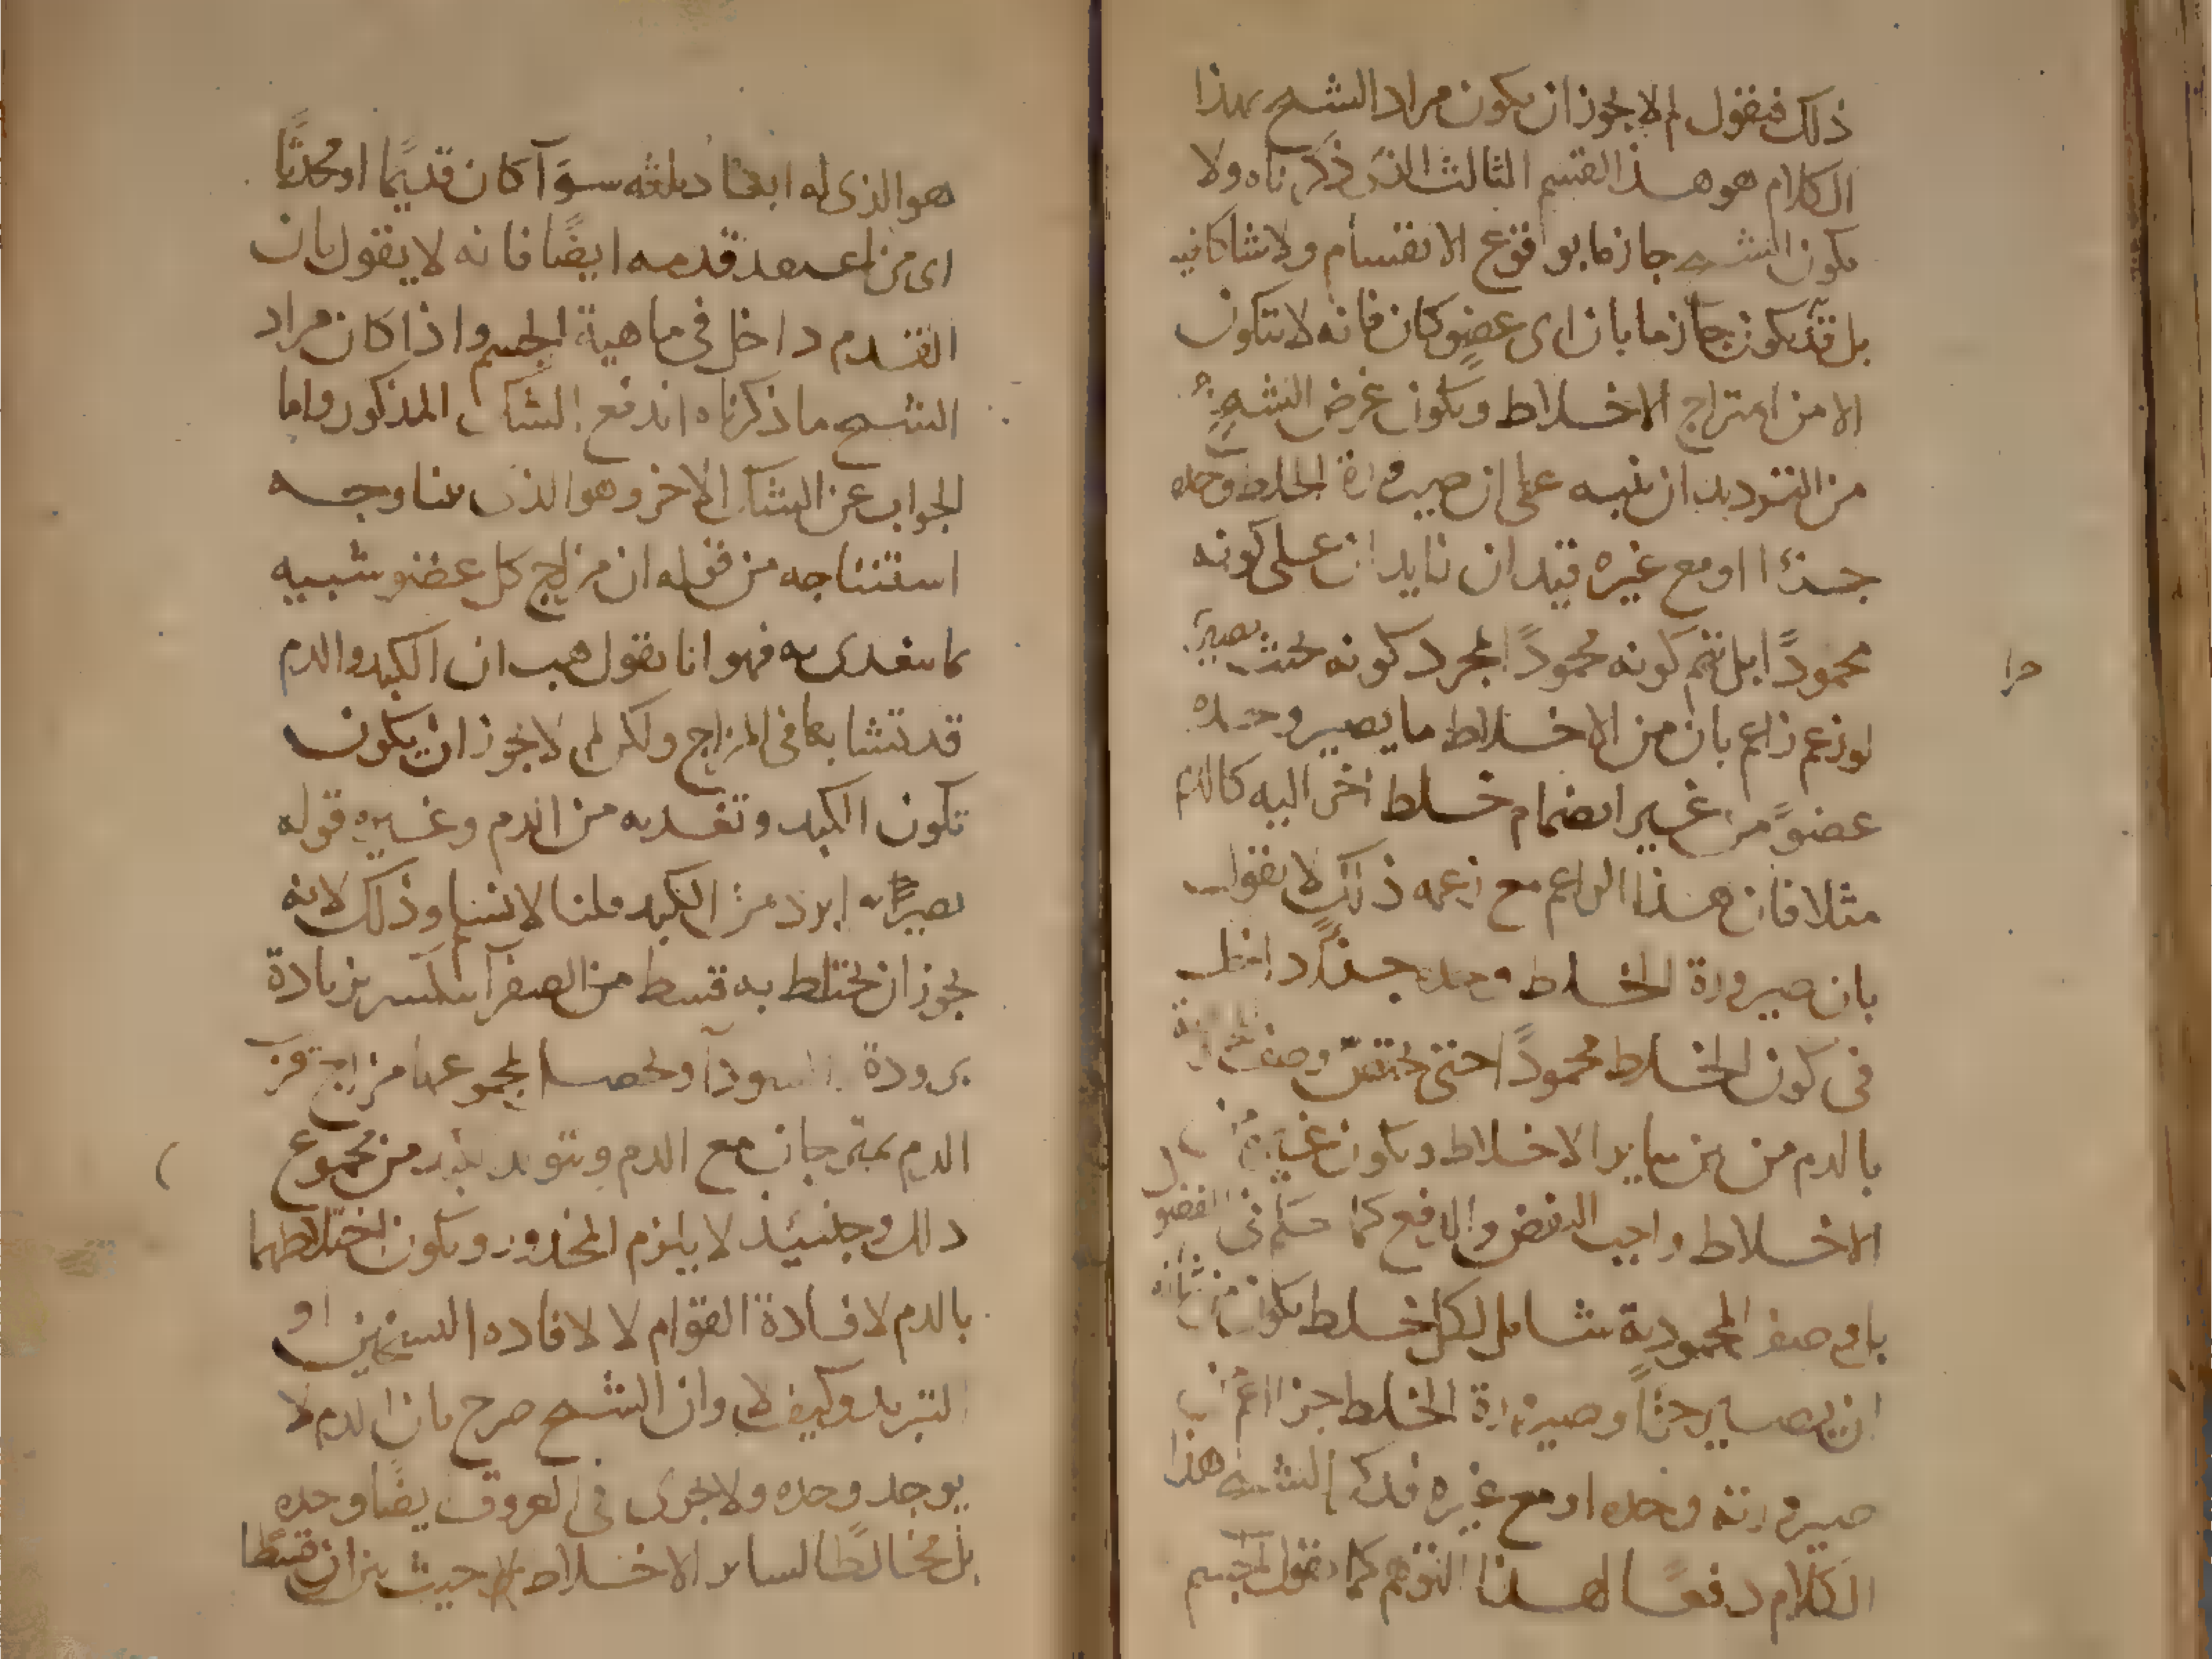 ذلك فنقول لم لا يجوز ان يكون مراد الشيخ بهذا
الكلام هو هذا القسم الثالث الذى ذكرناه ولا
يكون الشيخ جازما بوقوع الانقسام ولا شاكا فيه
بل قد يكون جازما بان اى عضو كان فانه لا يتكون
الا من امتزاج الاخلاط ويكون غرض الشيخ
من الترديد ان ينبه على ان صيرورة الخلط وحده
جزءا او مع غيره قيدان زايدان على كونه
محمودا بل يتم كونه محمودا لمجرد كونه بحيث يصير
لو زعم زاعم بان من الاخلاط ما يصير وحده
عضوا من غير انضمام خلط اخر اليه كالدم
مثلا فان هذا الزاعم مع زعمه ذلك لا يقول
بان صيرورة الخلط وحده جزءا داخل
فى كون الخلط محمودا حتى يختص وصف
بالدم من بين ساير الاخلاط ويكون غيره من
الاخلاط واجب النفض والدفع كما حكم فى الفضو
بان وصف المحمودية شامل لكل خلط يكون من شانه
ان يصير جزءا وصيرورة الخلط جزءا اعم من
صيرورته وحده او مع غيره فذكر الشيخ هذا
الكلام دفعا لهذا التوهم كما نقول الجسم
هو الذى له ابعاد ثلثه سوآ كان قديما او محدثا
اى من اعتقد قدمه ايضا فانه لا يقول بان
القدم داخل فى ماهية الجسم واذا كان مراد
الشيخ ما ذكرناه اندفع الشك المذكور واما
الجواب عن الشك الاخر وهو الذى بينا وجه
استنتاجه من قوله ان مزاج كل عضو شبيه
بما يغتدى به فهو انا نقول هب ان الكبد والدم
قد تشابها فى المزاج ولكن لم لا يجوز ان يكون
تكون الكبد وتغديه من الدم وغيره قوله
يصير ابرد من الكبد قلنا لا نسلم وذلك لانه
يجوز ان يختلط به قسط من الصفرآ ينكسر بزيادة
برودة السودآ ويحصل لمجموعهما مزاج قريب
الدم يمتزجان مع الدم ويتولد الكبد من مجموع
ذلك وحينئذ لا يلزم المحذور ويكون اختلاطهما
بالدم لافادة القوام لا لافاده التسخين او
التبريد وكيف لا وان الشيخ صرح بان الدم لا
يوجد وحده ولا يجرى فى العروق ايضا وحده
بل مخالطا لساير الاخلاط حيث بين ان قسطا